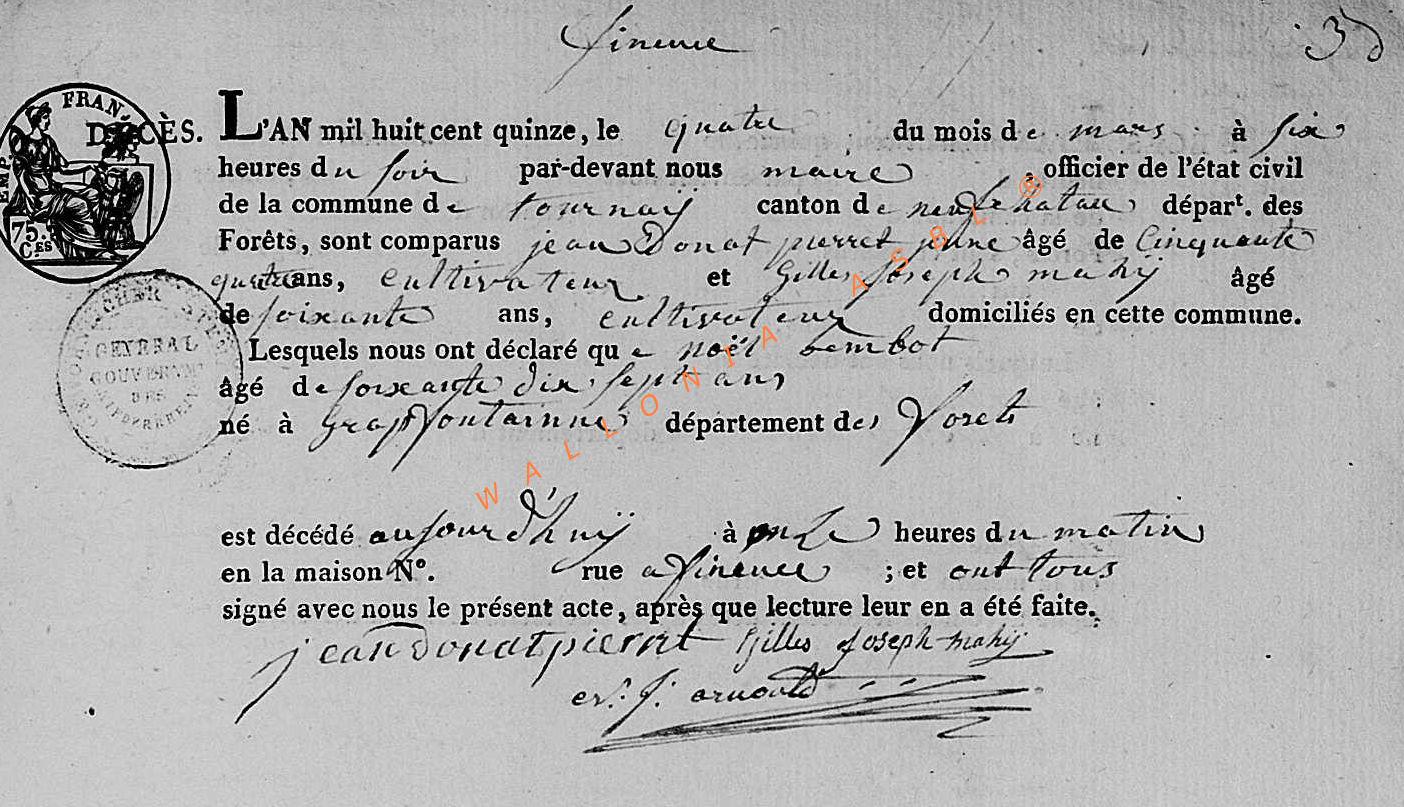 fineuse 3
FRAN
EMP. 75. C.ES
DÉCÈS. L'AN mil huit cent quinze, le quatre du mois de mars à six
heures du soir par-devant nous maire, officier de l'état civil
de la commune de tournaÿ canton de neufchatau départ. des
Forêts, sont comparus jean Donat pierret jeune âgé de Cinquante
quatre ans, cultivateur et Gilles Joseph mahÿ âgé
de soixante ans, cultivateur domiciliés en cette commune.
GENERAL
GOUVERNMT
DES
Lesquels nous ont déclaré que noël bembot
âgé de soixante dix sept ans
né à Grapfontainne département des Forets
est décédé aujourd'huÿ à onze heures du matin
en la maison N°. rue a fineuse ; et ont tous
signé avec nous le présent acte, après que lecture leur en a été faite.
jean Donat pierret Gilles Joseph mahÿ
j: arnould
WALLONIA ASBL ®